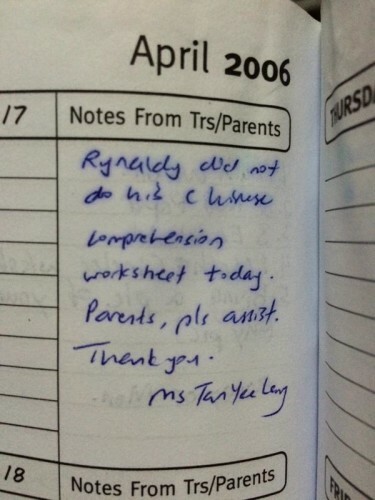 April 2006
17 Notes From Trs/Parents
THURSD
Rynaldy did not
do his Chinese
comprehension
worksheet today.
Parents, pls assist.
Thank you.
Ms Tan Yee Leng
18 Notes From Trs/Parents
FRI